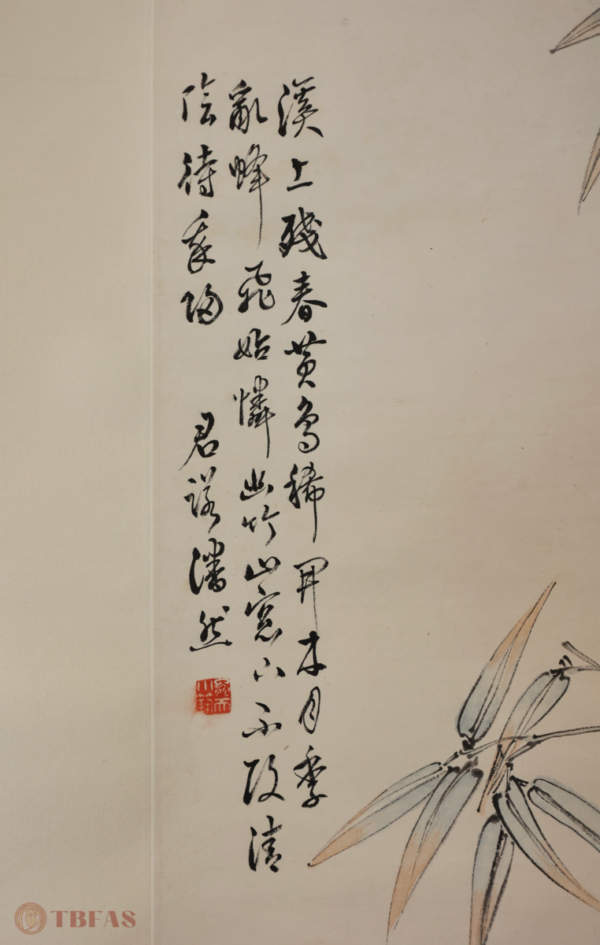 溪上殘春黃鳥稀開本月季
亂蜂飛始憐幽竹山窓下不改清
陰待我歸
君諾潘然
TBFAS